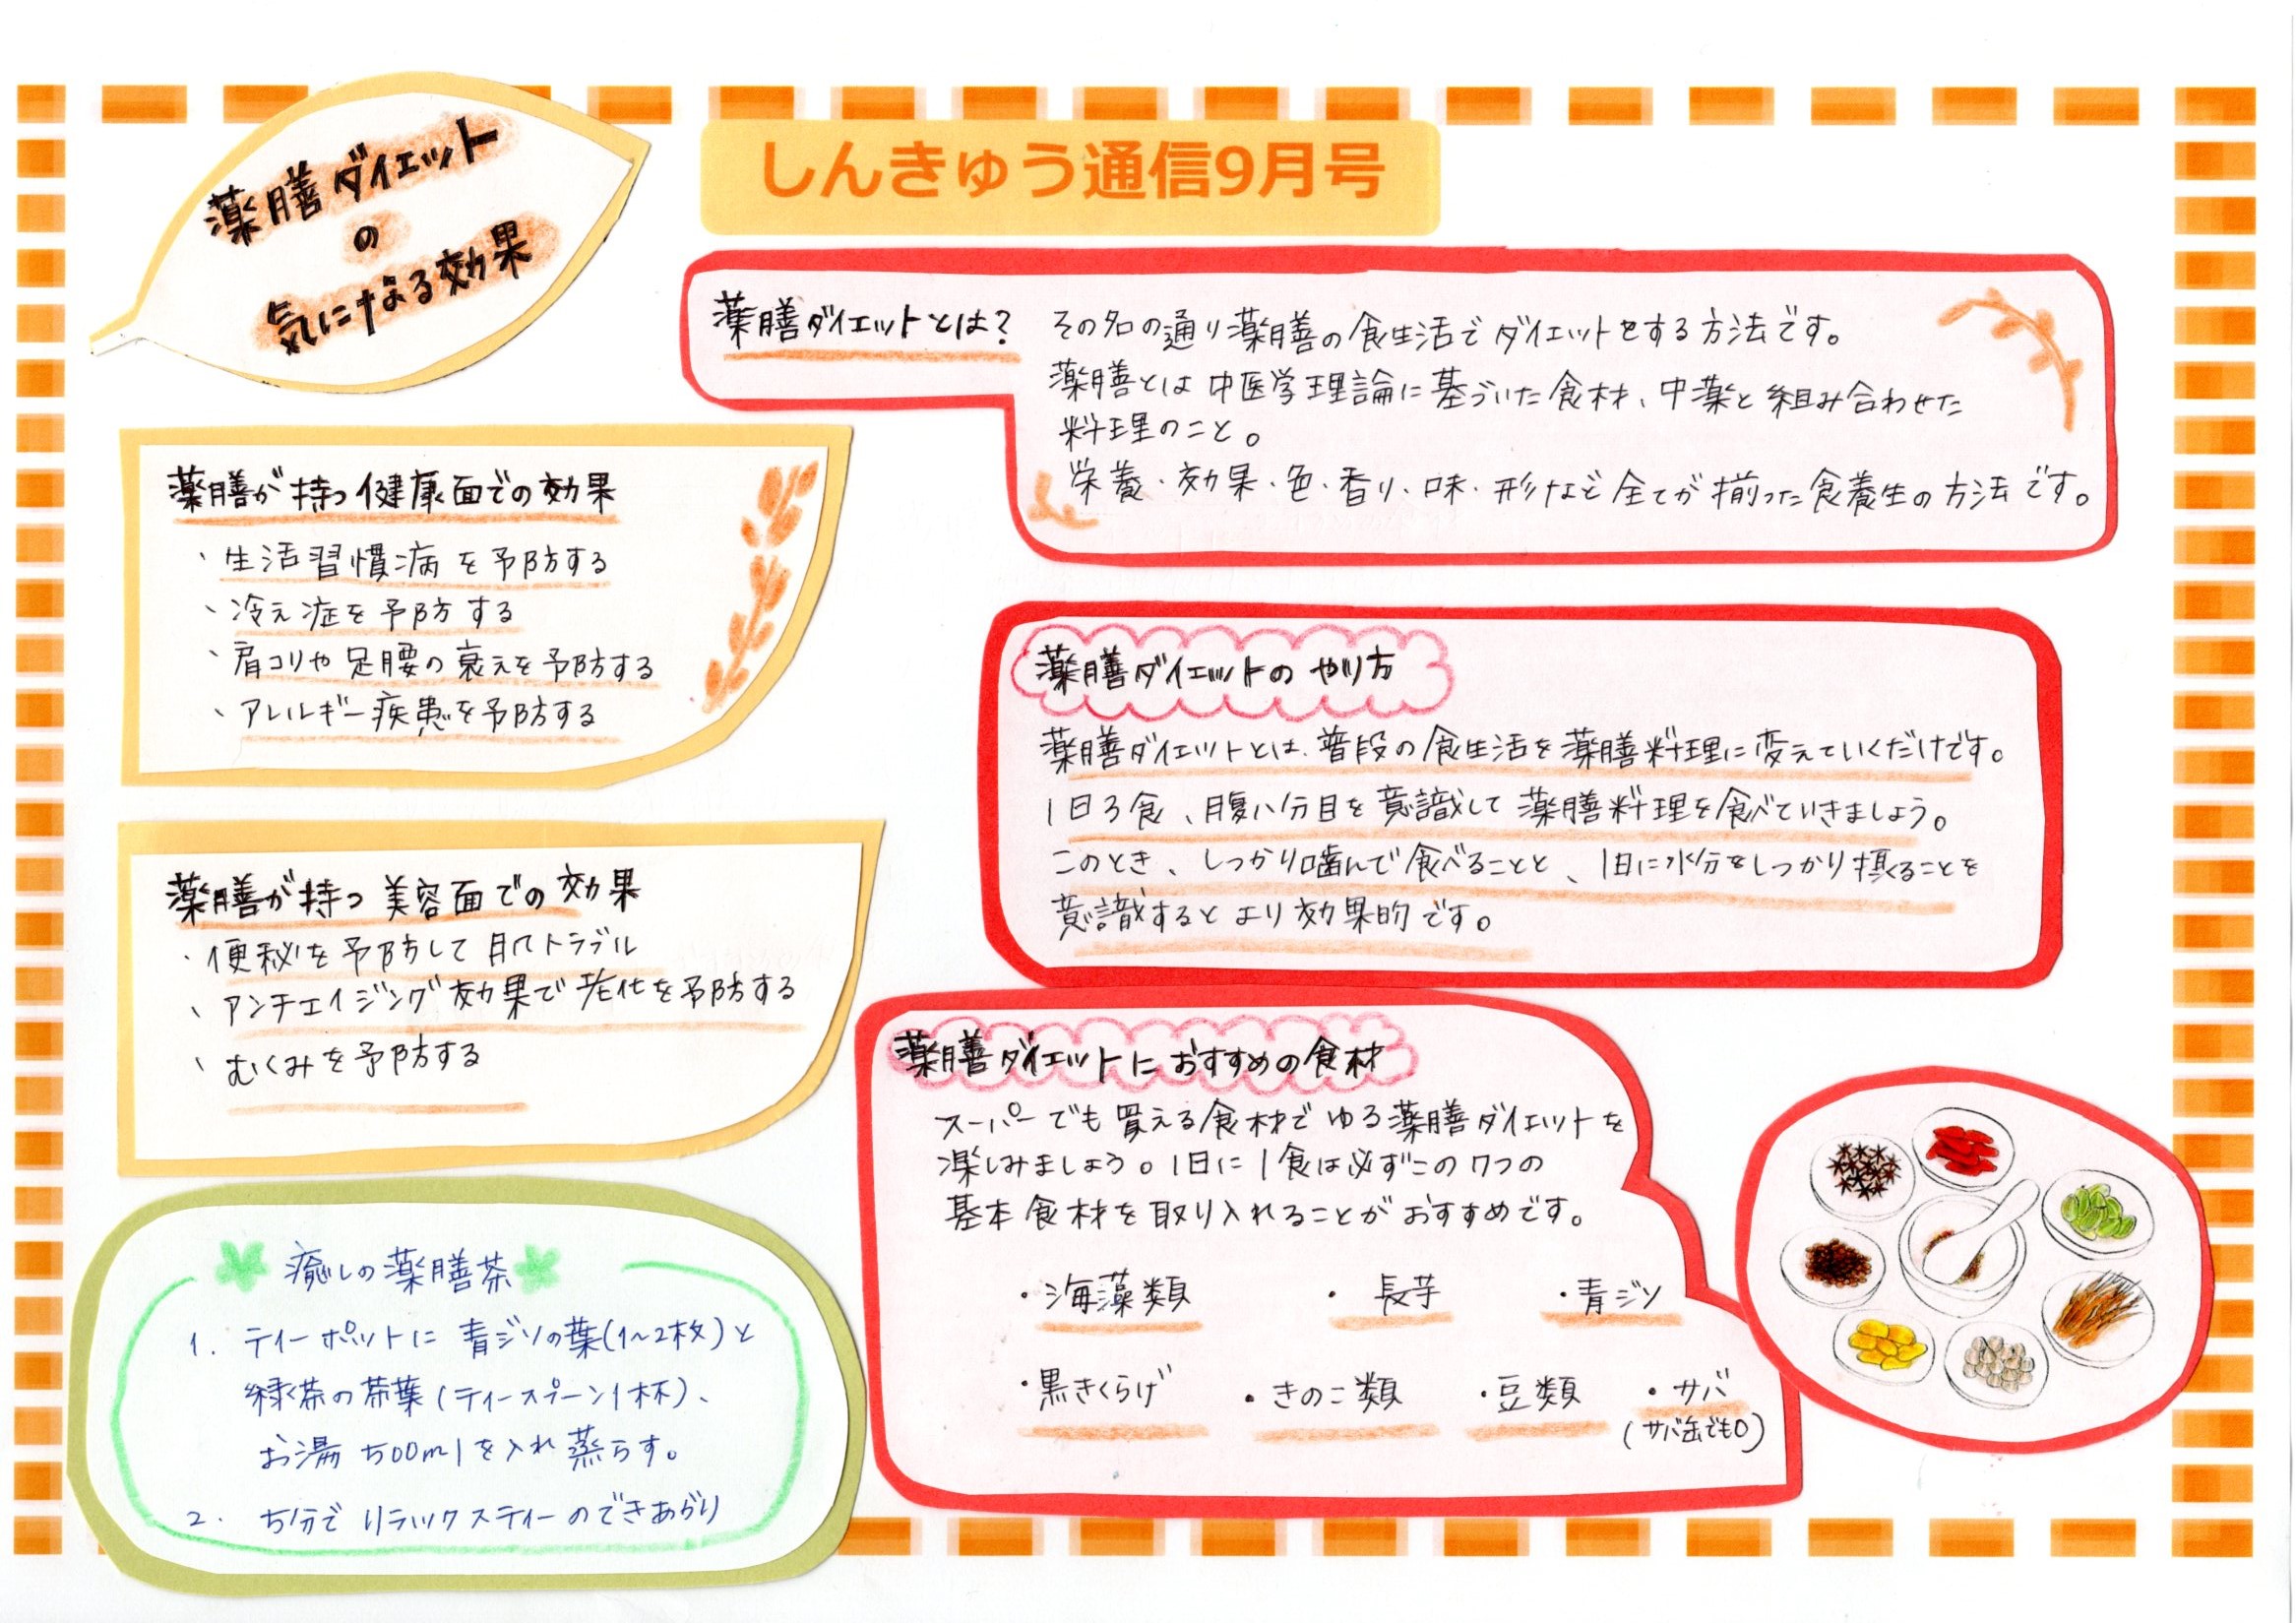 しんきゅう通信9月号
薬膳ダイエット
の
気になる効果
薬膳ダイエットとは?
その名の通り薬膳の食生活でダイエットをする方法です。
薬膳とは中医学理論に基づいた食材、中薬と組み合わせた
料理のこと。
栄養・効果・色・香り・味・形など全てが揃った食養生の方法です。
薬膳が持つ健康面での効果
・生活習慣病を予防する
・冷え症を予防する
・肩コリや足腰の衰えを予防する
・アレルギー疾患を予防する
薬膳が持つ美容面での効果
・便秘を予防して肌トラブル
・アンチエイジング効果で老化を予防する
・むくみを予防する
癒しの薬膳茶
1. ティーポットに青ジソの葉(1~2枚)と
緑茶の茶葉(ティースプーン1杯)、
お湯500mlを入れ蒸らす。
2. 5分でリラックスティーのできあがり
薬膳ダイエットのやり方
薬膳ダイエットとは、普段の食生活を薬膳料理に変えていくだけです。
1日3食、腹八分目を意識して薬膳料理を食べていきましょう。
このとき、しっかり噛んで食べることと、1日に水分をしっかり摂ることを
意識するとより効果的です。
薬膳ダイエットにおすすめの食材
スーパーでも買える食材でゆる薬膳ダイエットを
楽しみましょう。1日に1食は必ずこの7つの
基本食材を取り入れることがおすすめです。
・海藻類 ・長芋 ・青ジソ
・黒きくらげ ・きのこ類 ・豆類 ・サバ
(サバ缶でも○)